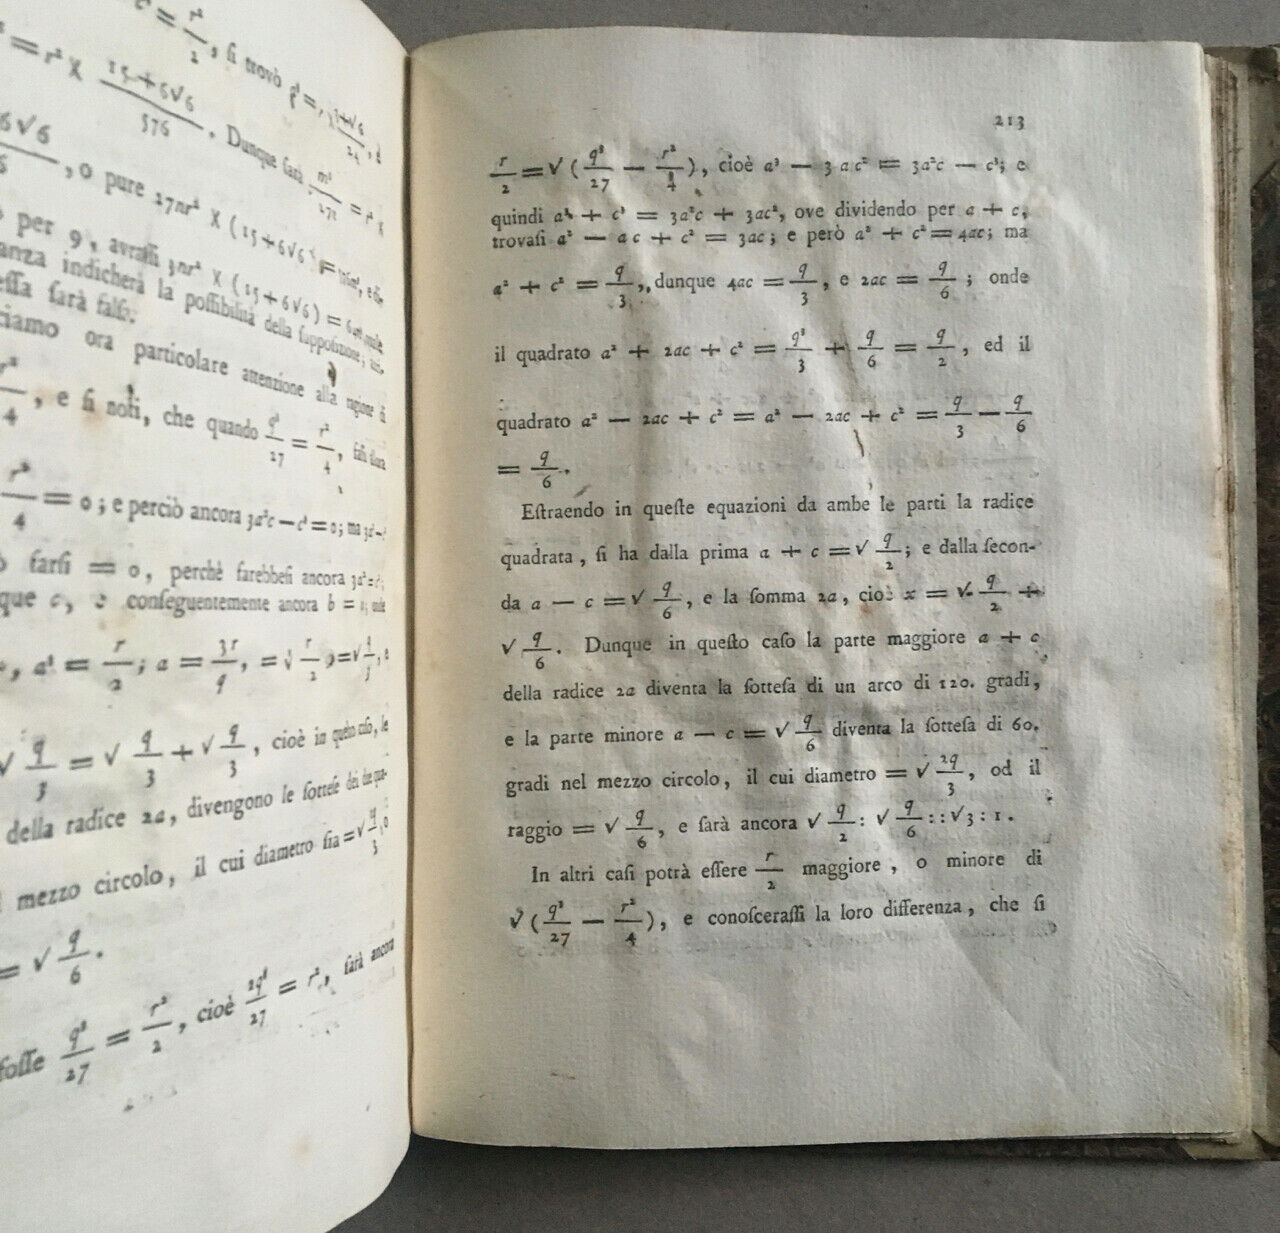 = r²/2, ſi trovò
= r² × (15+6√6)/576. Dunque ſarà m³/271 = r² ×
, o pure 27nr² × (15+6√6
per 9, avraſſi 3nr² × (15+6√6) =
indicherà la poſſibilità della ſuppoſizione;
ſarà falſa.
ora particolare attenzione alla ragione di
r²/4, e ſi noti, che quando q³/27 = r²/4,
r²/4 = 0; e perciò ancora 3a²c — c³ = 0; ma
farſi = 0, perchè farebbeſi ancora
que c, e conſeguentemente ancora b =
, a³ = r/2; a = 3r/q, =
√ q/3 = √ q/3 + √ q/3, cioè in queſto caſo, le
della radice 2a, divengono le ſotteſe dei due
mezzo circolo, il cui diametro ſia = √ q/3, o
= √ q/6.
foſſe q³/27 = r²/2, cioè 2q³/27 = r², ſarà ancora
213
r/2 = √ (q³/27 — r²/4), cioè a³ — 3 ac² = 3a²c — c³; e
quindi a³ + c³ = 3a²c + 3ac², ove dividendo per a + c,
trovaſi a² — ac + c² = 3ac; e però a² + c² = 4ac; ma
a² + c² = q/3, dunque 4ac = q/3, e 2ac = q/6; onde
il quadrato a² + 2ac + c² = q³/3 + q/6 = q/2, ed il
quadrato a² — 2ac + c² = a² — 2ac + c² = q/3 — q/6
= q/6.
Eſtraendo in queſte equazioni da ambe le parti la radice
quadrata, ſi ha dalla prima a + c = √ q/2; e dalla ſecon-
da a — c = √ q/6, e la ſomma 2a, cioè x = √ q/2 +
√ q/6. Dunque in queſto caſo la parte maggiore a + c
della radice 2a diventa la ſotteſa di un arco di 120. gradi,
e la parte minore a — c = √ q/6 diventa la ſotteſa di 60.
gradi nel mezzo circolo, il cui diametro = √ 2q/3, od il
raggio = √ q/6, e ſarà ancora √ q/2 : √ q/6 :: √3 : 1.
In altri caſi potrà eſſere r/2 maggiore, o minore di
√ (q³/27 — r²/4), e conoſceraſſi la loro differenza, che ſi